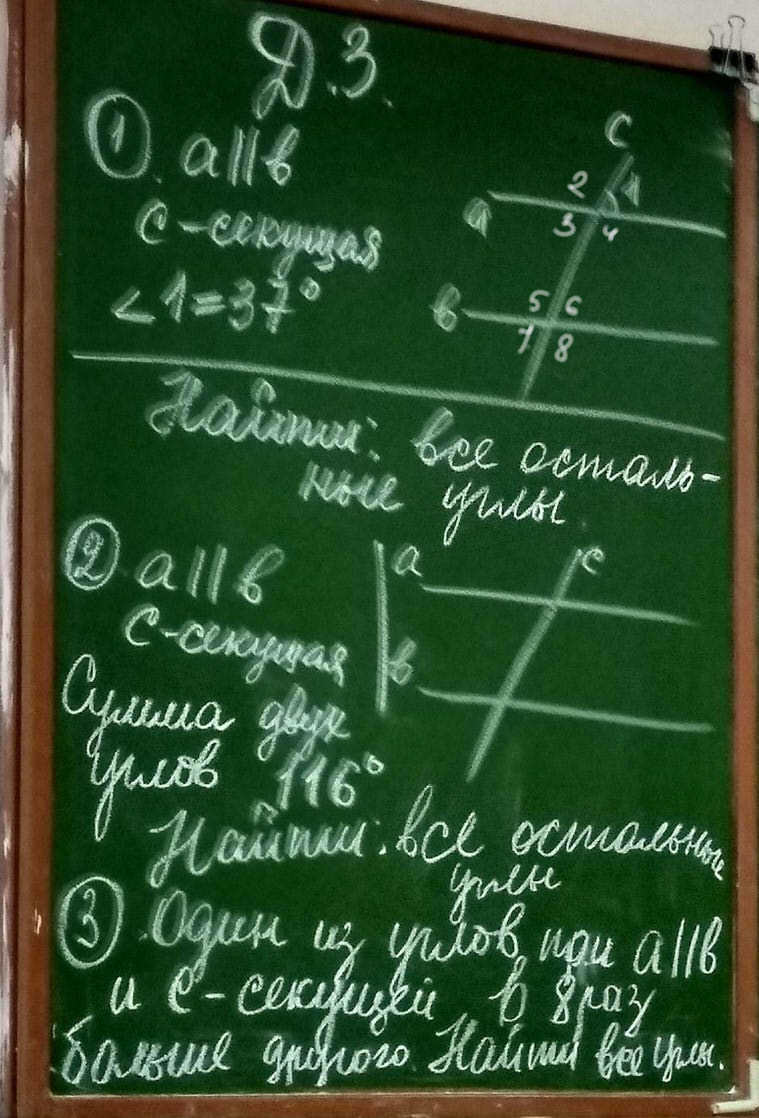 Д.З.
① a||в
с-секущая
<1=37°
c
2 1
a
3 4
в
5 6
7 8
Найти: все осталь-
ные углы.
② a||в
с-секущая
a
c
в
Сумма двух
углов 116°
Найти: все остальные
углы
③ Один из углов при a||в
и с-секущей в 8 раз
больше другого. Найти все углы.